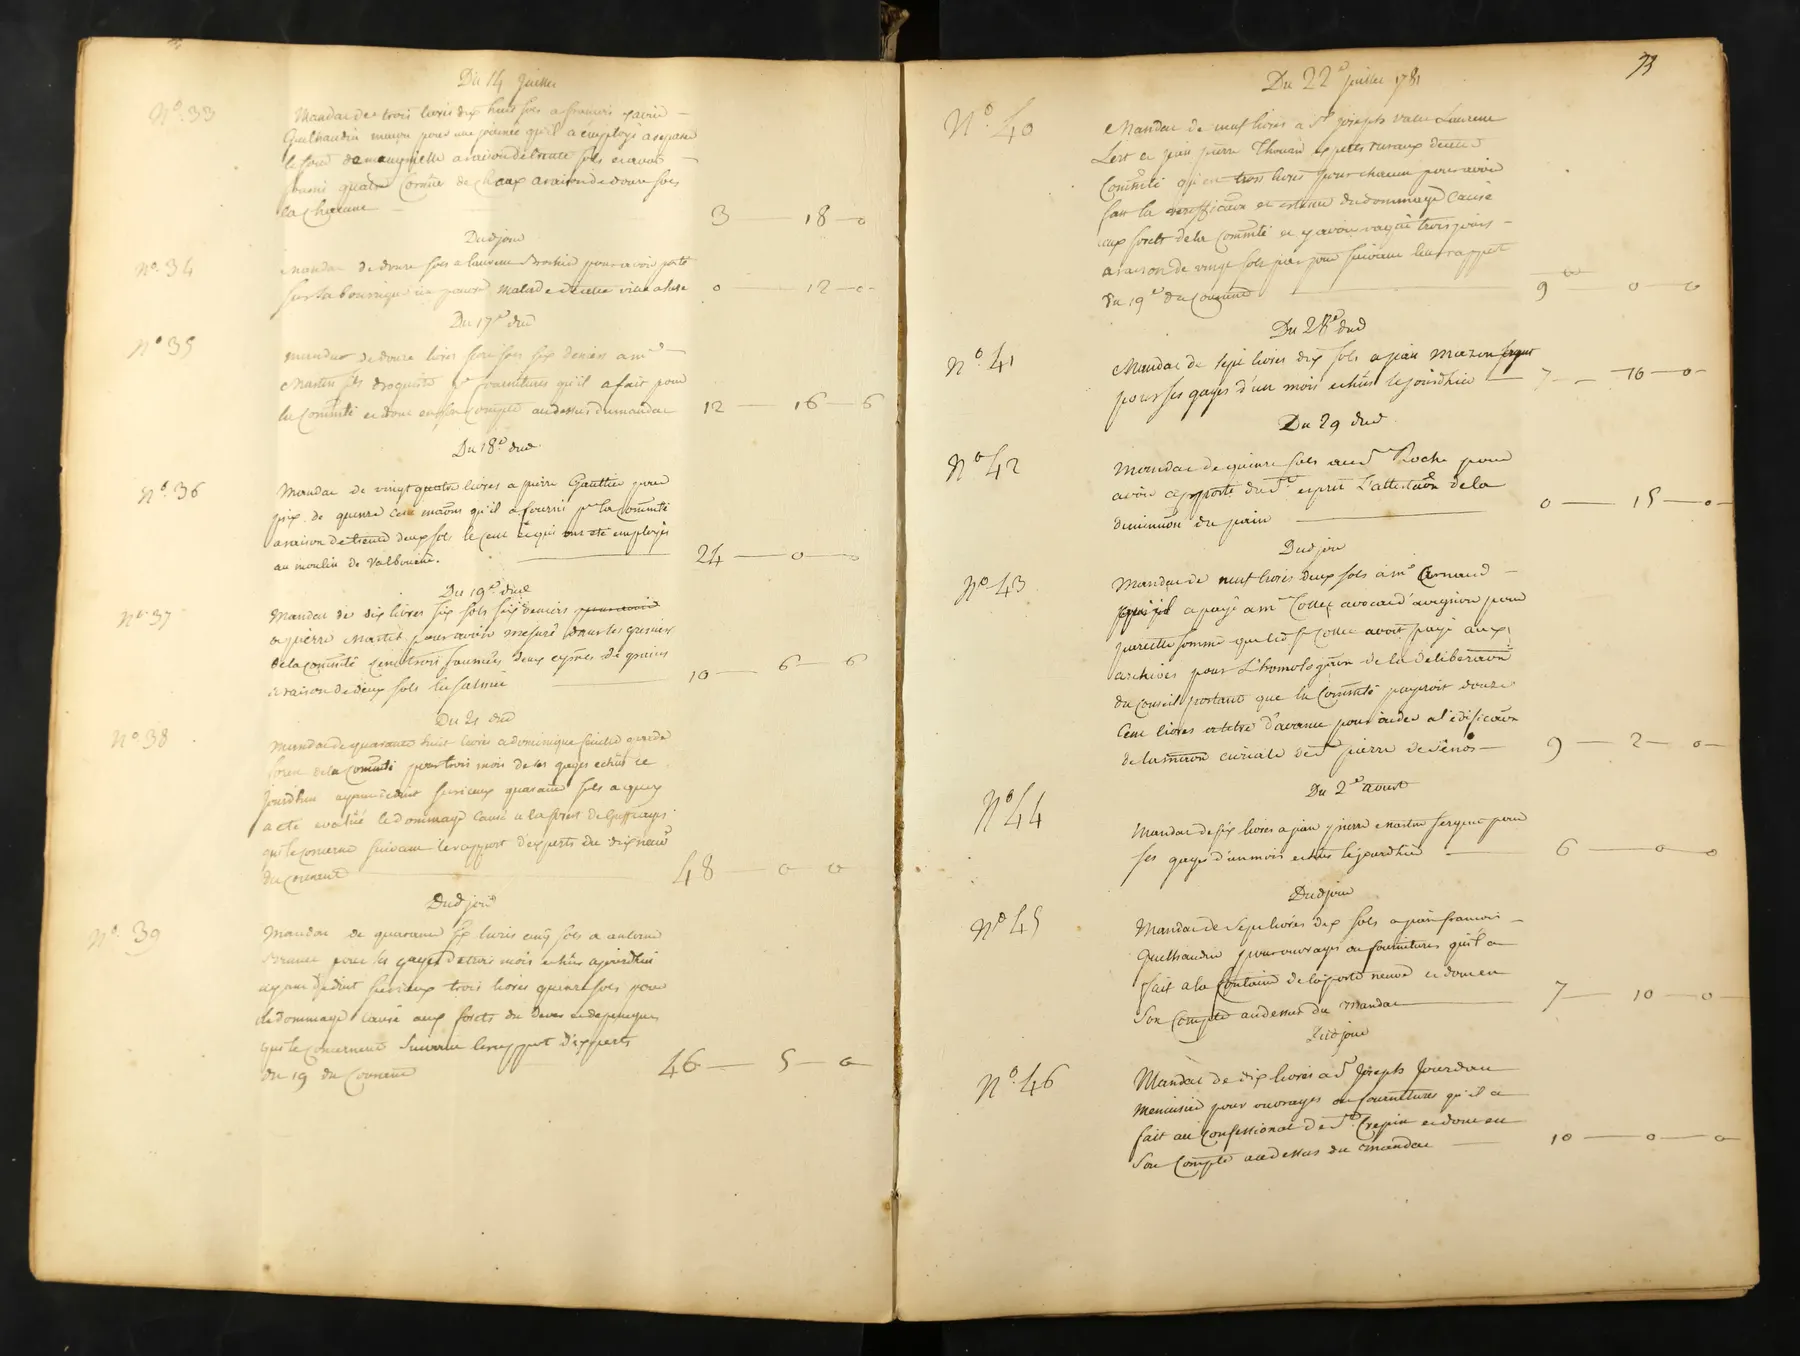 Du 14 Juillet
N° 33
Mandat de trois livres dix huit sols a francois xavier
Guilhaudin maçon pour une journée qu'il a employé a reparer
le four a raison de trente sols et avoir
fourni quatre de chaux a raison de douze sols
la chacune
3 — 18 — 0
Dud jour
N° 34
Mandat de douze sols a laurent pour avoir porté
sur sa bourrique un pauvre malade de cette ville a
0 — 12 — 0
Du 17e dud
N° 35
Mandat de douze livres seize sols six deniers a mr
Martin fils droguiste pr fournitures qu'il a fait pour
la Commté et dont en son Compte au dessus du mandat
12 — 16 — 6
Du 18e dud
N° 36
Mandat de vingt quatre livres a pierre Gauttier pour
prix de quinze cent maons qu'il a fourni pr la Commté
a raison de trente deux sols le cent et qui ont été employés
au moulin de Valbouine.
24 — 0 — 0
Du 19e dud
N° 37
Mandat de dix livres six sols six deniers
a pierre Martin pour avoir mesuré dans les greniers
de la commté cent trois saumées deux eymes de grains
a raison de deux sols la salmée
10 — 6 — 6
Du 21 dud
N° 38
Mandat de quarante huit livres a dominique garde
foret de la Commté pour trois mois de ses gages echus ce
jourdhui ayant deduit quarante sols a quoy
a eté evalué le dommage causé a la foret de
qui le concerne suivant le rapport d'experts du dix neuf
du courant
48 — 0 — 0
Dud jour
N° 39
Mandat de quarante six livres cinq sols a antoine
pour les gages de trois mois echus aujourdhui
ayant deduit trois livres quinze sols pour
le dommage causé aux forets du Deves
qui le concernent suivant le rapport d'experts
du 19 du Courant
46 — 5 — 0
73
Du 22e Juillet 1781
N° 40
Mandat de neuf livres a Sr joseph Laurent
et jean pierre Thouard experts ruraux de cette
Commté qui est trois livres pour chacun pour avoir
fait la verifficaon et estime du dommage causé
aux forets de la Commté et y avoir vaqué trois jours
a raison de vingt sols par jour suivant leur rapport
du 19e du courant
9 — 0 — 0
Du 28e dud
N° 41
Mandat de sept livres dix sols a jean Mazen sergent
pour ses gages d'un mois echus cejourdhui
7 — 10 — 0
Du 29 dud
N° 42
Mandat de quinze sols au Sr Roche pour
avoir apporté du St esprit l'attestaon de la
diminuon du pain
0 — 15 — 0
Dud jour
N° 43
Mandat de neuf livres deux sols a mr Arnaud
qu'il a payé a mr Collet avocat d'avignon pour
pareille somme que led Sr Collet avoit payé aux
archives pour l'homologaon de la deliberaon
du Conseil portant que la Commté payeroit douze
Cent livres a titre d'avance pour aider a l'edificaon
de la maison curiale de St pierre de Senos
9 — 2 — 0
Du 2e aoust
N° 44
Mandat de six livres a jean pierre Martin sergent pour
ses gages d'un mois echus cejourdhui
6 — 0 — 0
Dud jour
N° 45
Mandat de sept livres dix sols a jean francois
Guilhaudin pour ouvrages ou fournitures qu'il a
fait a la fontaine de la porte neuve et dont en
son Compte au dessus du Mandat
7 — 10 — 0
Dud jour
N° 46
Mandat de dix livres a Sr Joseph Jourdan
Menuisier pour ouvrages ou fournitures qu'il a
fait au Confessional de St Crepin et dont en
son Compte au dessus du Mandat
10 — 0 — 0